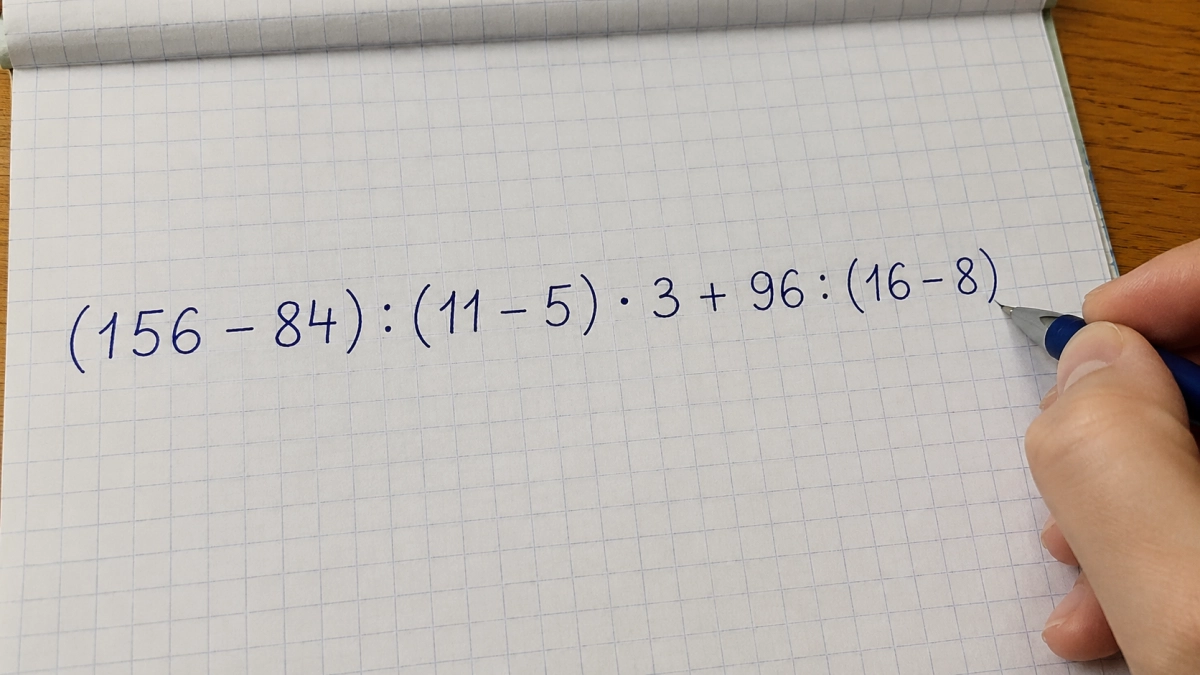 (156 – 84) : (11 – 5) · 3 + 96 : (16 – 8)